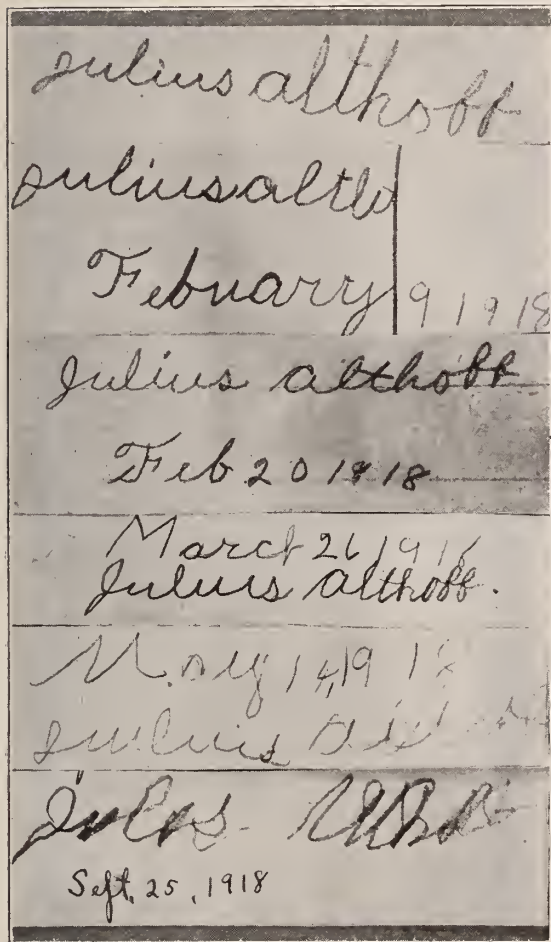 julius althoff
julius altho
Febuary 9 1918
Julius althoff
Feb 20 1918
March 26 191
Julius althoff.
May 14, 19 18
julius
Sept. 25, 1918